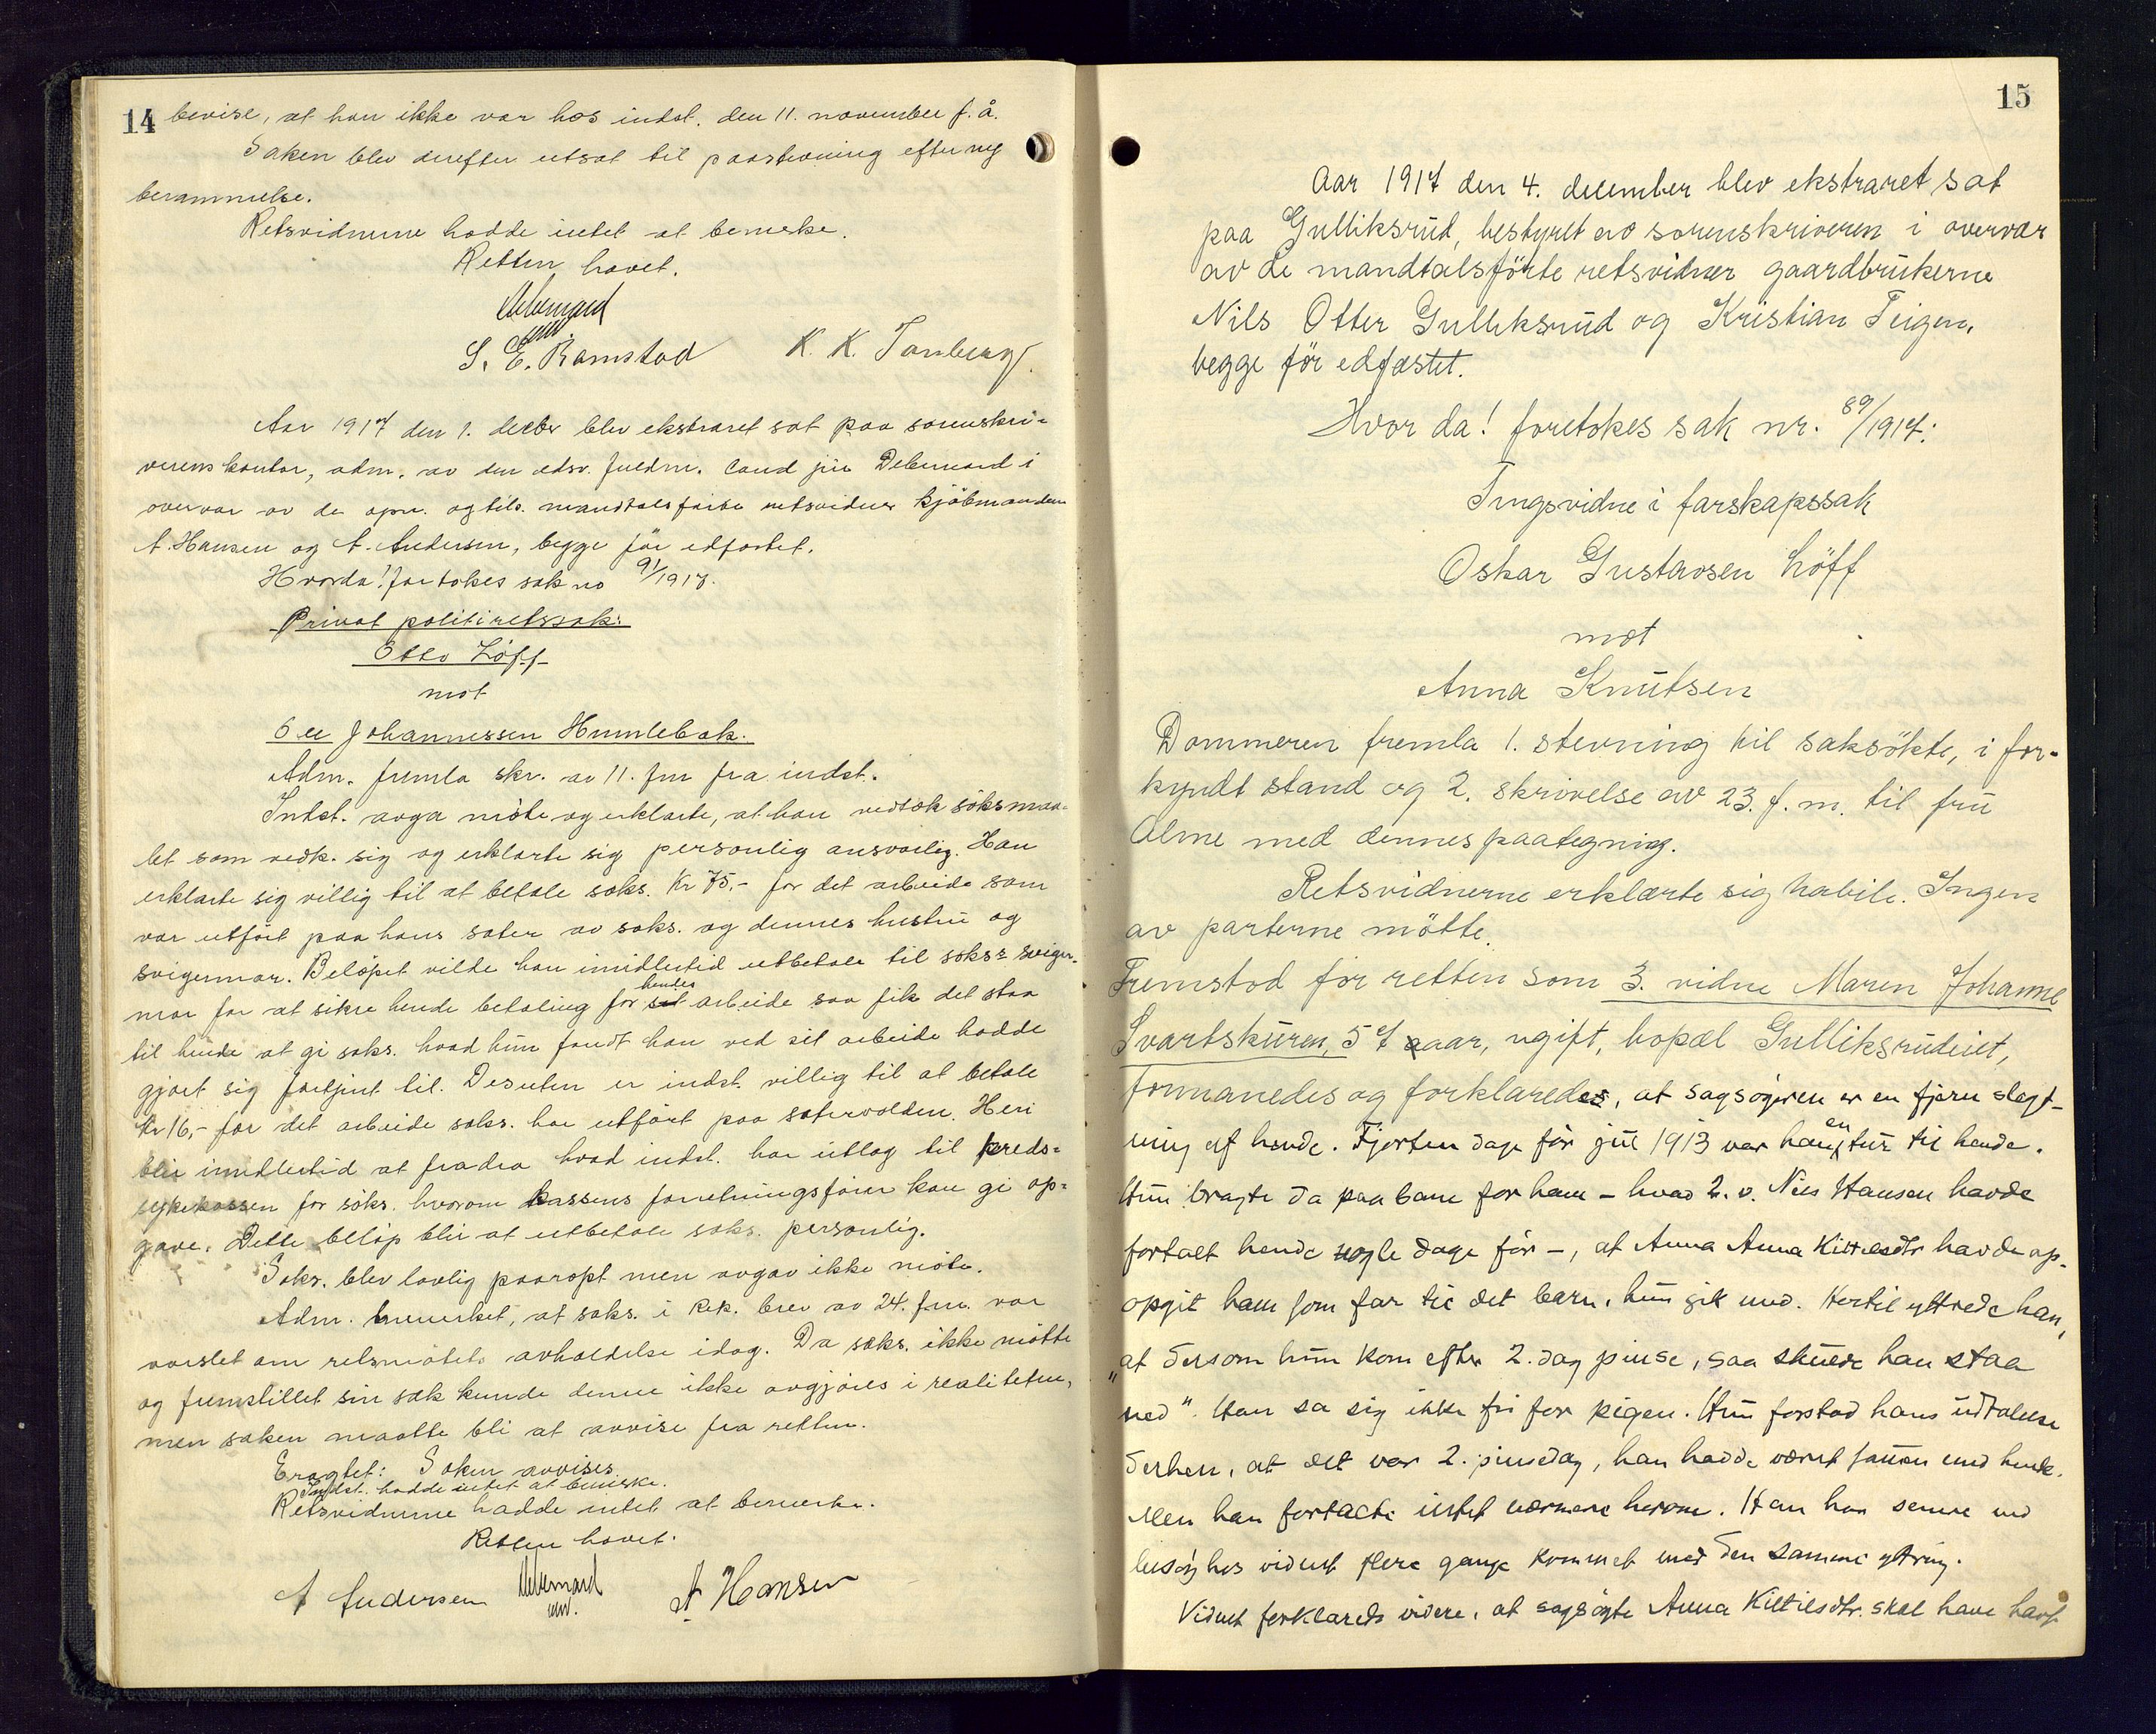 14
bevise, at han ikke var hos indst. den 11. november f. å.
Saken blev derefter utsat til paastevning efter ny
berammelse.
Retsvidnerne hadde intet at bemerke.
Retten hævet.
S. E. Ramstad K. K. Tanberg.
Aar 1917 den 1. decbr blev ekstraret sat paa sorenskri-
verens kontor, adm. av den edsv. fuldm. cand jur Debernard i
overvær av de opn. og tils. mandtalsførte retsvidner kjöbmændene
A. Hansen og A. Andersen, begge för edfæstet.
Hvorda! foretokes sak no 91/1917.
Privat politiretssak:
Otto Löff
mot
Ole Johannessen Humlebæk.
Adm. fremla skr. av 11. fm fra indst.
Indst. avga möte og erklærte, at han vedtok söksmaa-
let som vedk. sig og erklærte sig personlig ansvarlig. Han
erklærte sig villig til at betale saks. Kr 75,- for det arbeide som
var utfört paa hans sæter av saks. og dennes hustru og
svigermor. Belöpet vilde han imidlertid utbetale til saks.s sviger-
mor for at sikre hende betaling for sit hendes arbeide saa fik det staa
til hende at gi saks. hvad hun fandt han ved sit arbeide hadde
gjort sig fortjent til. Desuten er indst. villig til at betale
Kr 16,- for det arbeide saks. har utfört paa sætervolden. Heri
blir imidlertid at fradra hvad indst. har utlag til kreds-
sykekassen for saks. hvorom kassens forretningsförer kan gi op-
gave. Dette belöp blir at utbetale saks. personlig.
Saks. blev lovlig paaropt men avgav ikke möte.
Adm. bemerket, at saks. i rek. brev av 24. f.m. var
varslet om retsmötets avholdelse idag. Da saks. ikke mötte
og fremstillet sin sak kunde denne ikke avgjöres i realiteten,
men saken maatte bli at avvise fra retten.
Eragtet: Saken avvises.
Indst. hadde intet at bemerke.
Retsvidnerne hadde intet at bemerke.
Retten hævet.
A Andersen Debernard A Hansen
15
Aar 1917 den 4. december blev ekstraret sat
paa Gulliksrud, bestyret av sorenskriveren i overvær
av de mandtalsförte retsvidner gaardbrukerne
Nils Otter Gulliksrud og Kristian Teigen,
begge för edfæstet.
Hvor da! foretokes sak nr. 89/1917:
Tingsvidne i farskapssak
Oskar Gustavsen Löff
mot
Anna Knutsen
Dommeren fremla 1. stevning til saksökte, i for-
kyndt stand og 2. skrivelse av 23. f. m. til fru
Alme med dennes paategning.
Retsvidnerne erklærte sig habile. Ingen
av parterne mötte.
Fremstod for retten som 3. vidne Maren Johanne
Svartskuren, 57 aar, ugift, bopæl Gulliksrudeiet,
formanedes og forklaredes, at sagsøgeren er en fjern slegt-
ning af hende. Fjorten dage før jul 1913 var han en tur til hende.
Hun bragte da paa bane for ham - hvad 2. v. Nils Hansen havde
fortalt hende nogle dage før -, at Anna Anna Kittilsdtr havde op-
opgit ham som far til det barn, hun gik med. Hertil yttrede han,
"at dersom hun kom efter 2. dag pinse, saa skulde han staa
ved". Han sa sig ikke fri for pigen. Hun forstod hans udtalelse
derhen, at det var 2. pinsedag, han hadde været sammen med hende.
Men han fortalte intet nærmere herom. Han har senere ved
besøg hos vidnet flere gange kommet med den samme yttring.
Vidnet forklareds videre, at sagsøgte Anna Kittilsdtr. skal have havt